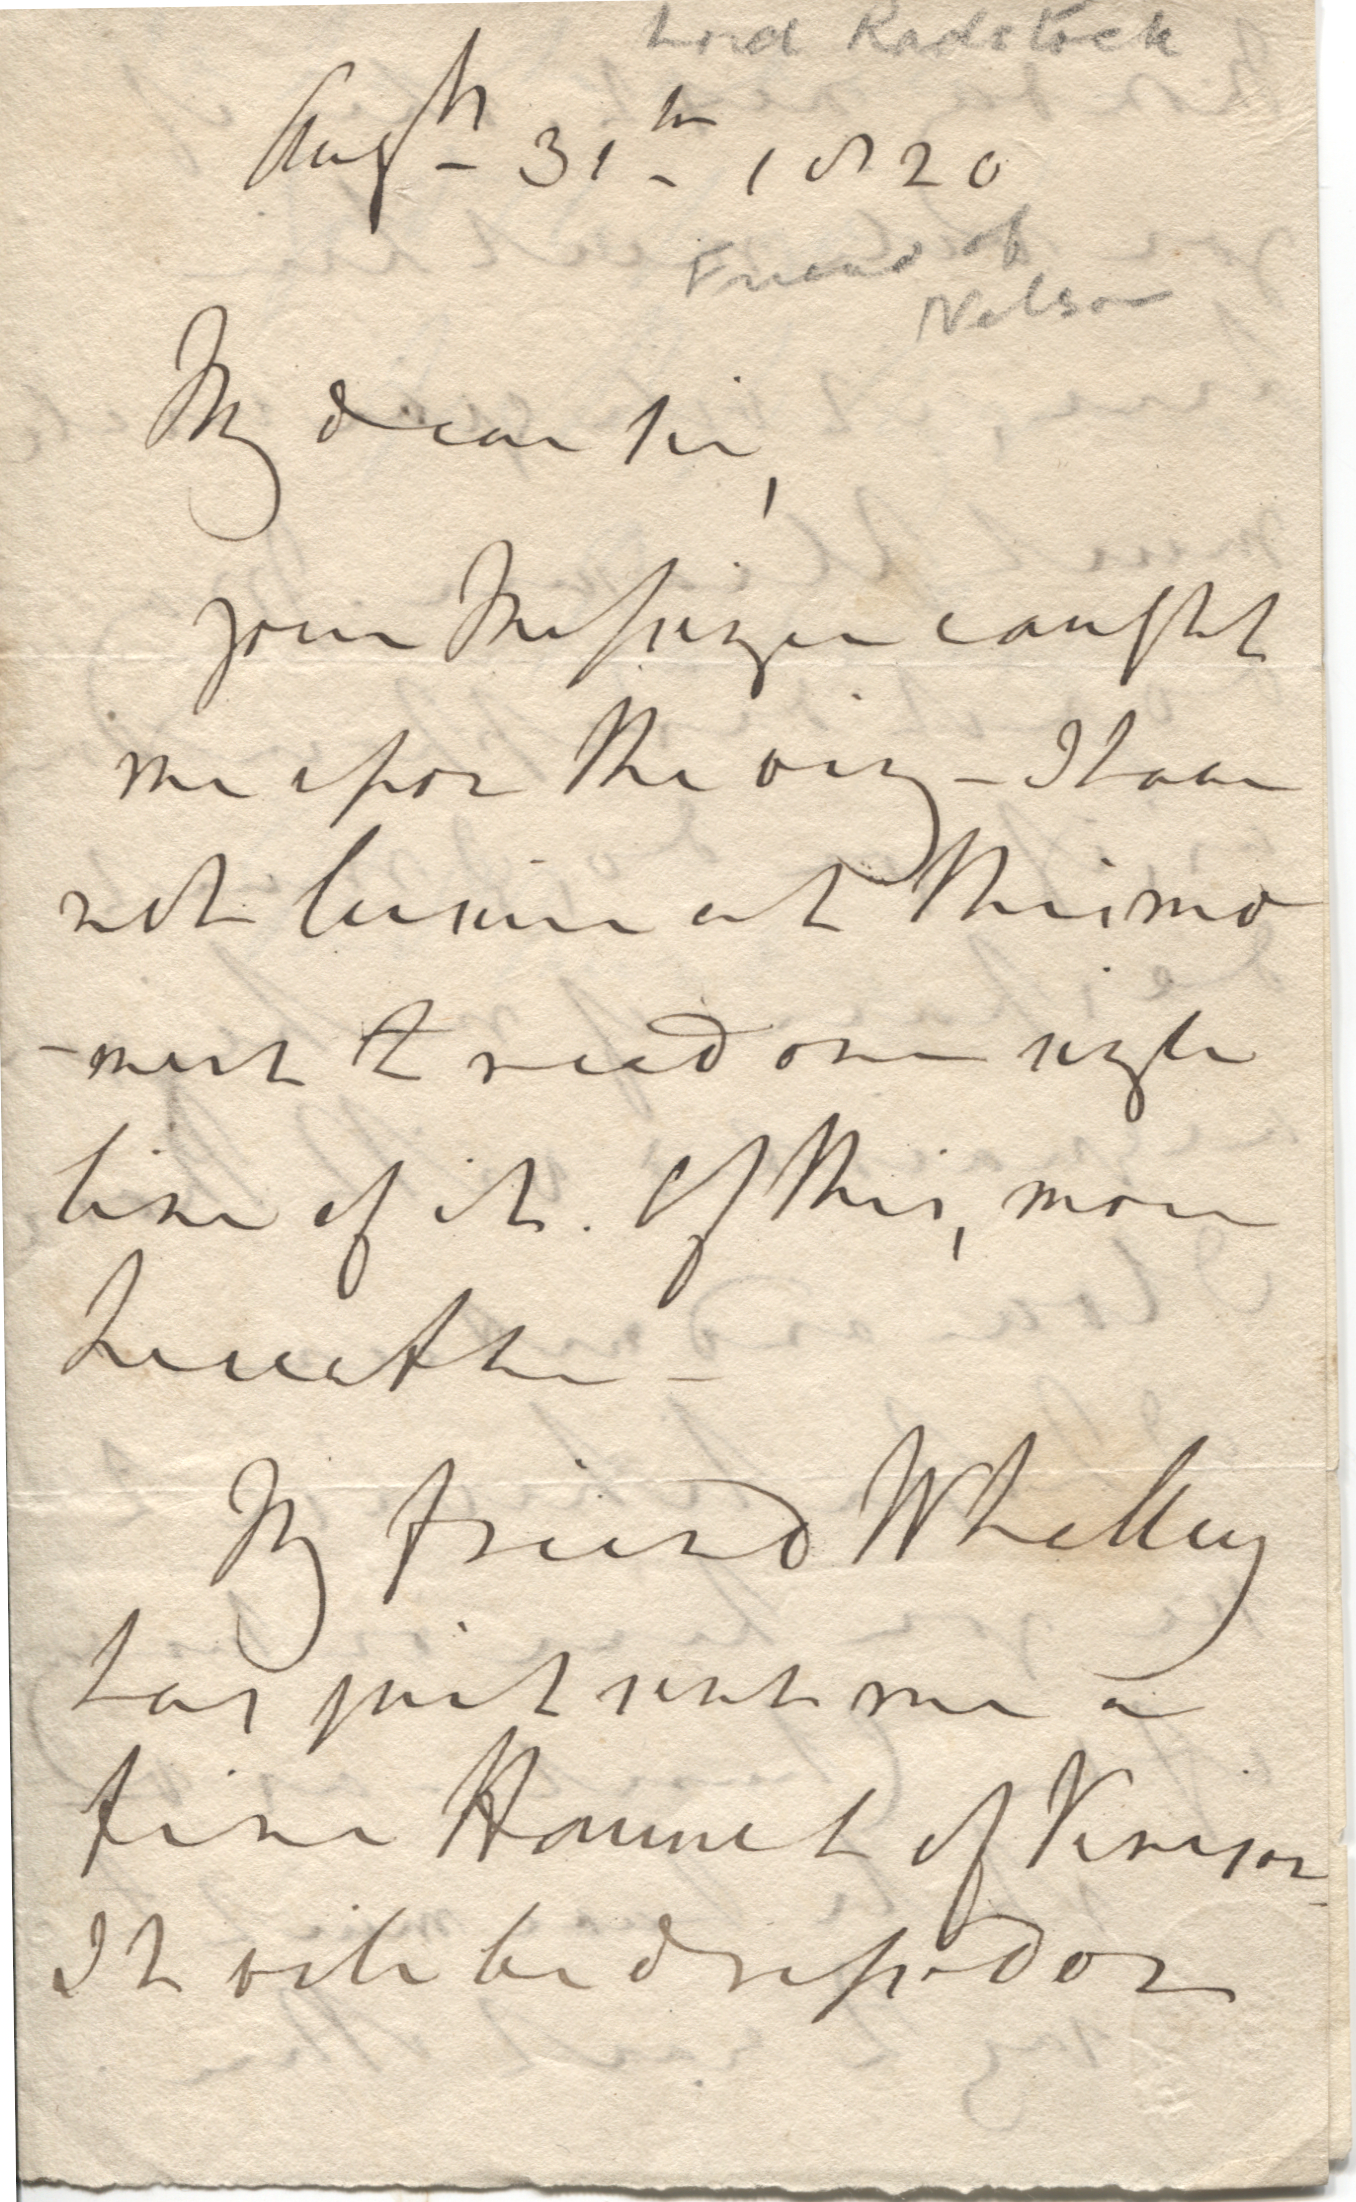 Lord Radstock
Augt - 31th - 1820
Friend of
Nelson
My dear Sir,
your Messenger caught
me upon the wing - I have
not leisure at this mo
-ment to read one single
line of it. Of this, more
hereafter -
My friend Whalley
has just sent me a
fine Haunch of Venison
It will be dressed on